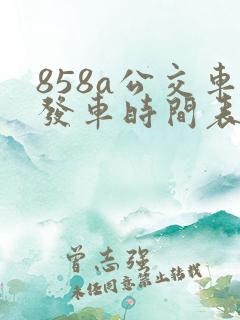 858a公交車
發車時間表
曾志强
未經同意禁止轉載